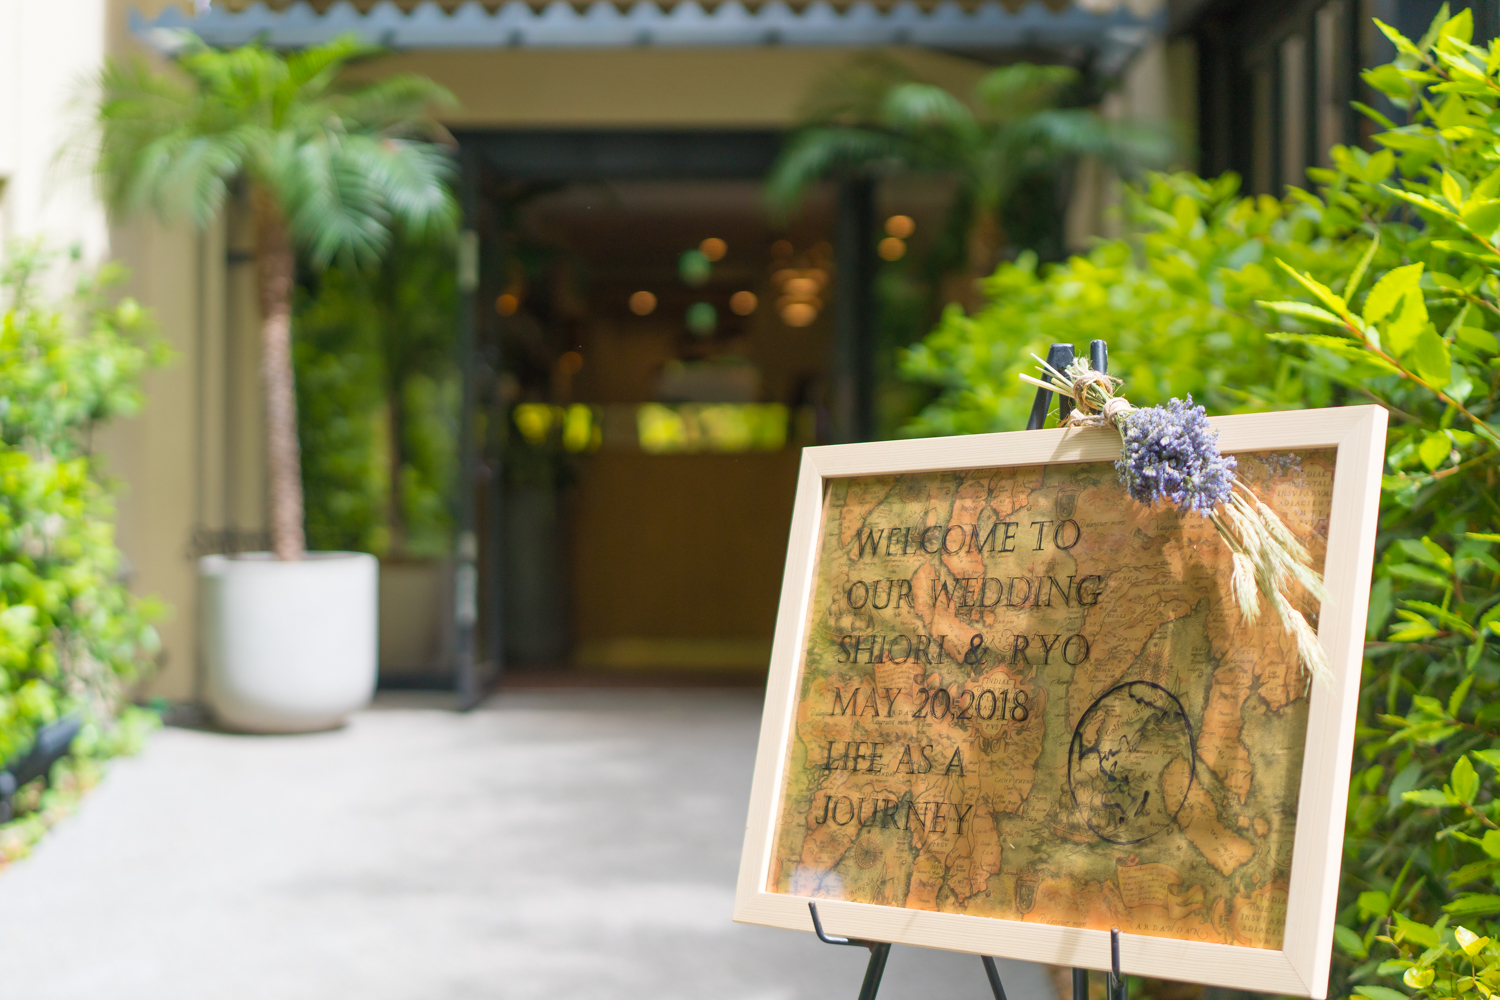 WELCOME TO
OUR WEDDING
SHIORI & RYO
MAY 20,2018
LIFE AS A
JOURNEY